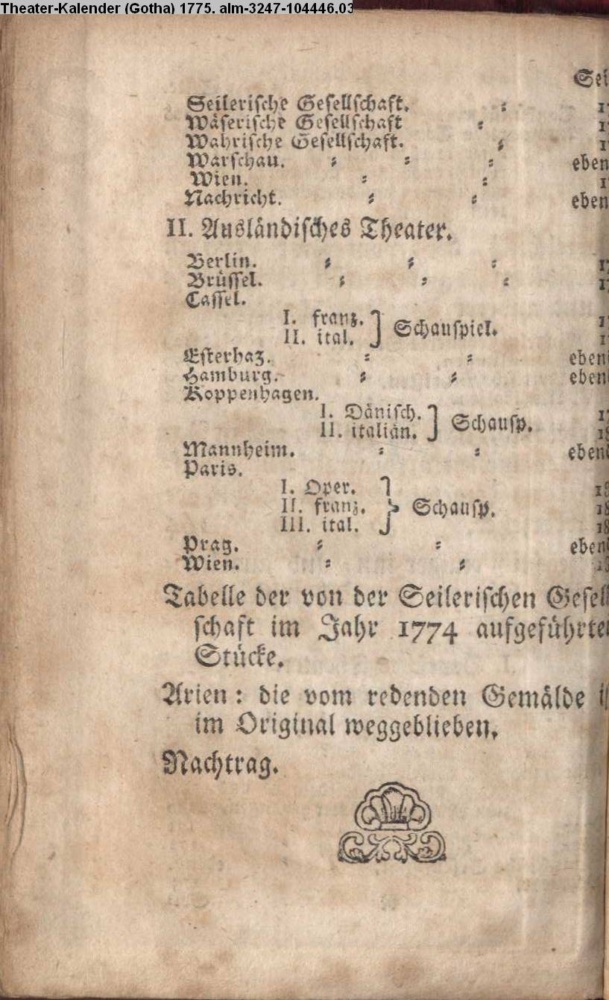 Theater-Kalender (Gotha) 1775. alm-3247-104446,03
Sei
Seilerische Gesellschaft. = 1
Wäserische Gesellschaft = 1
Wahrische Gesellschaft. = 1
Warschau. = = = eben
Wien. = = 1
Nachricht. = = eben
II. Ausländisches Theater.
Berlin. = = = 1
Brüssel. = = = 1
Cassel.
I. franz. } Schauspiel. 1
II. ital.
Esterhaz. = = eben
Hamburg. = = eben
Koppenhagen.
I. Dänisch. } Schausp. 1
II. italiän. 18
Mannheim. = = eben
Paris.
I. Oper. 18
II. franz. } Schausp. 18
III. ital. 18
Prag. = = eben
Wien. = = 18
Tabelle der von der Seilerischen Gesell
schaft im Jahr 1774 aufgeführte
Stücke.
Arien: die vom redenden Gemälde is
im Original weggeblieben.
Nachtrag.